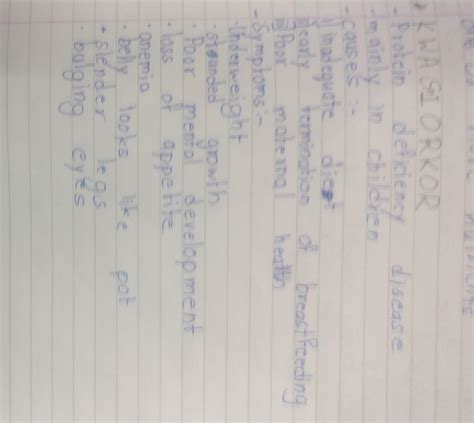 * KWASIORKOR
- Protein deficiency disease
- mainly in children
- causes :-
i) inadequate diet
ii) early termination of breastfeeding
iii) Poor maternal health
- Symptoms :-
• Underweight
• stunded growth
• Poor mental development
• loss of appetite
• anemia
• belly looks like pot
• slender legs
• bulging eyes